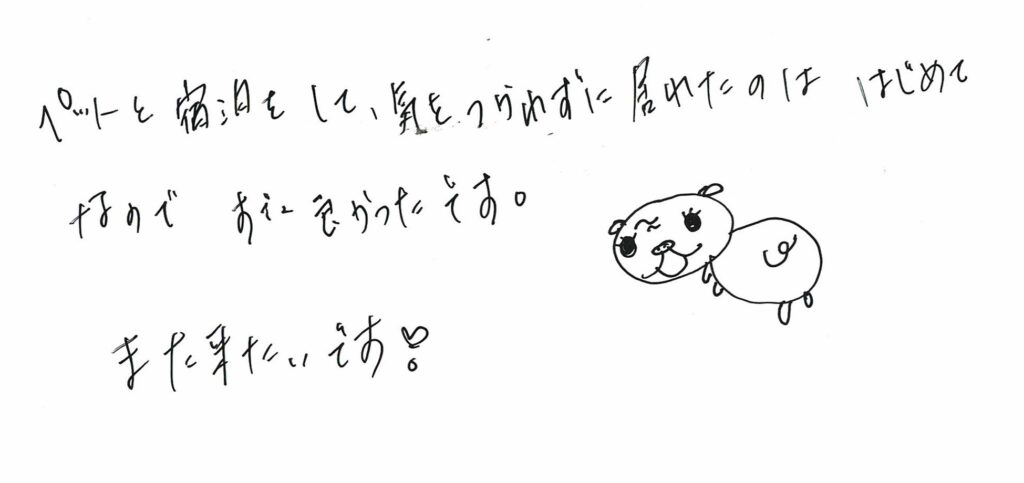 ペットと宿泊をして、気をつかわずに居れたのは はじめて
なので 良かったです。
また来たいです♡